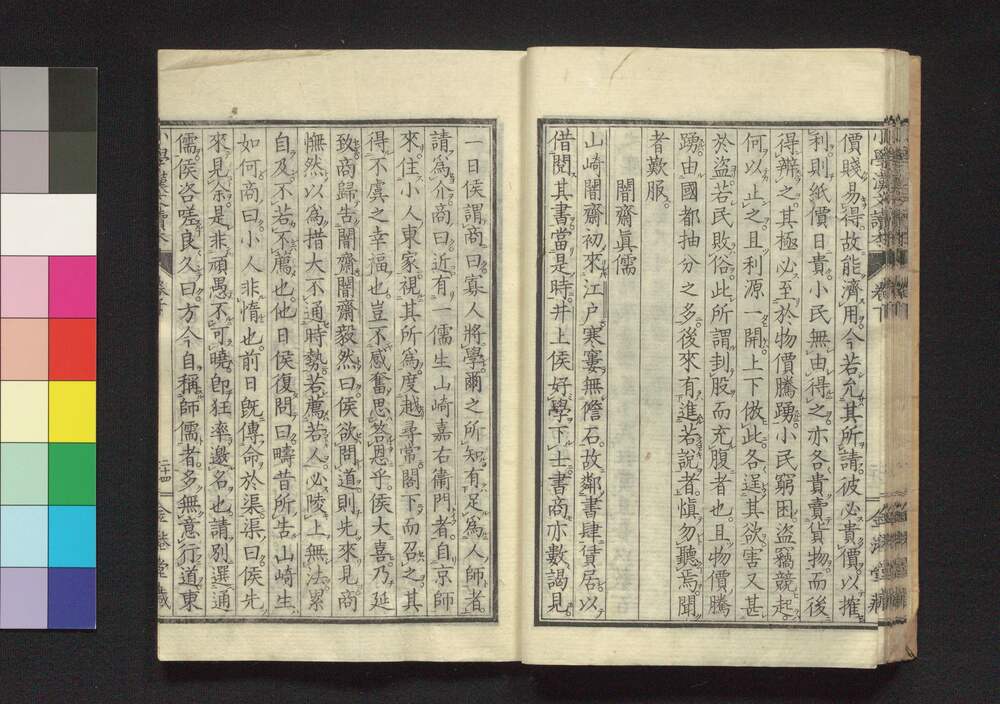 價賤易得。故能濟用。今若允其所請。彼必貴價以搉
利。則紙價日貴。小民無由得之。亦各貴賣貨物。而後
得辨之。其極必至於物價騰踴。小民窮困。盜竊競起。
何以止之。且利源一開。上下倣此。各逞其欲。害又甚
於盜。若民敗俗。此所謂刲股而充腹者也。且物價騰
踴。由國都抽分之多。後來有進若說者。愼勿聽焉。聞
者歎服。
闇齋眞儒
山崎闇齋初來江戸。寒寠無儋石。故鄰書肆賃居。以
借閱其書。當是時。井上侯好學下士。書商亦數謁見。
一日侯謂商曰。寡人將學。爾之所知。有足爲人師者。
請爲介。商曰。近有一儒生山崎嘉右衞門者。自京師
來。住小人東家。視其所爲。度越尋常。閣下而召之。其
得不虞之幸福也。豈不感奮思答恩乎。侯大喜。乃延
致。商歸告闇齋。闇齋毅然曰。侯欲問道。則先來見。商
憮然以爲措大不通時勢。若薦若人。必陵上無法。累
自及。不若不薦也。他日侯復問曰。疇昔所告山崎生
如何。商曰。小人非惰也。前日旣傳命於渠。渠曰。侯先
來見余。是非頑愚不可曉。卽狂率邀名也。請別選通
儒。侯咨嗟良久曰。方今自稱師儒者。多無意行道。東
小學漢文讀本
卷下
二十四
金港堂藏